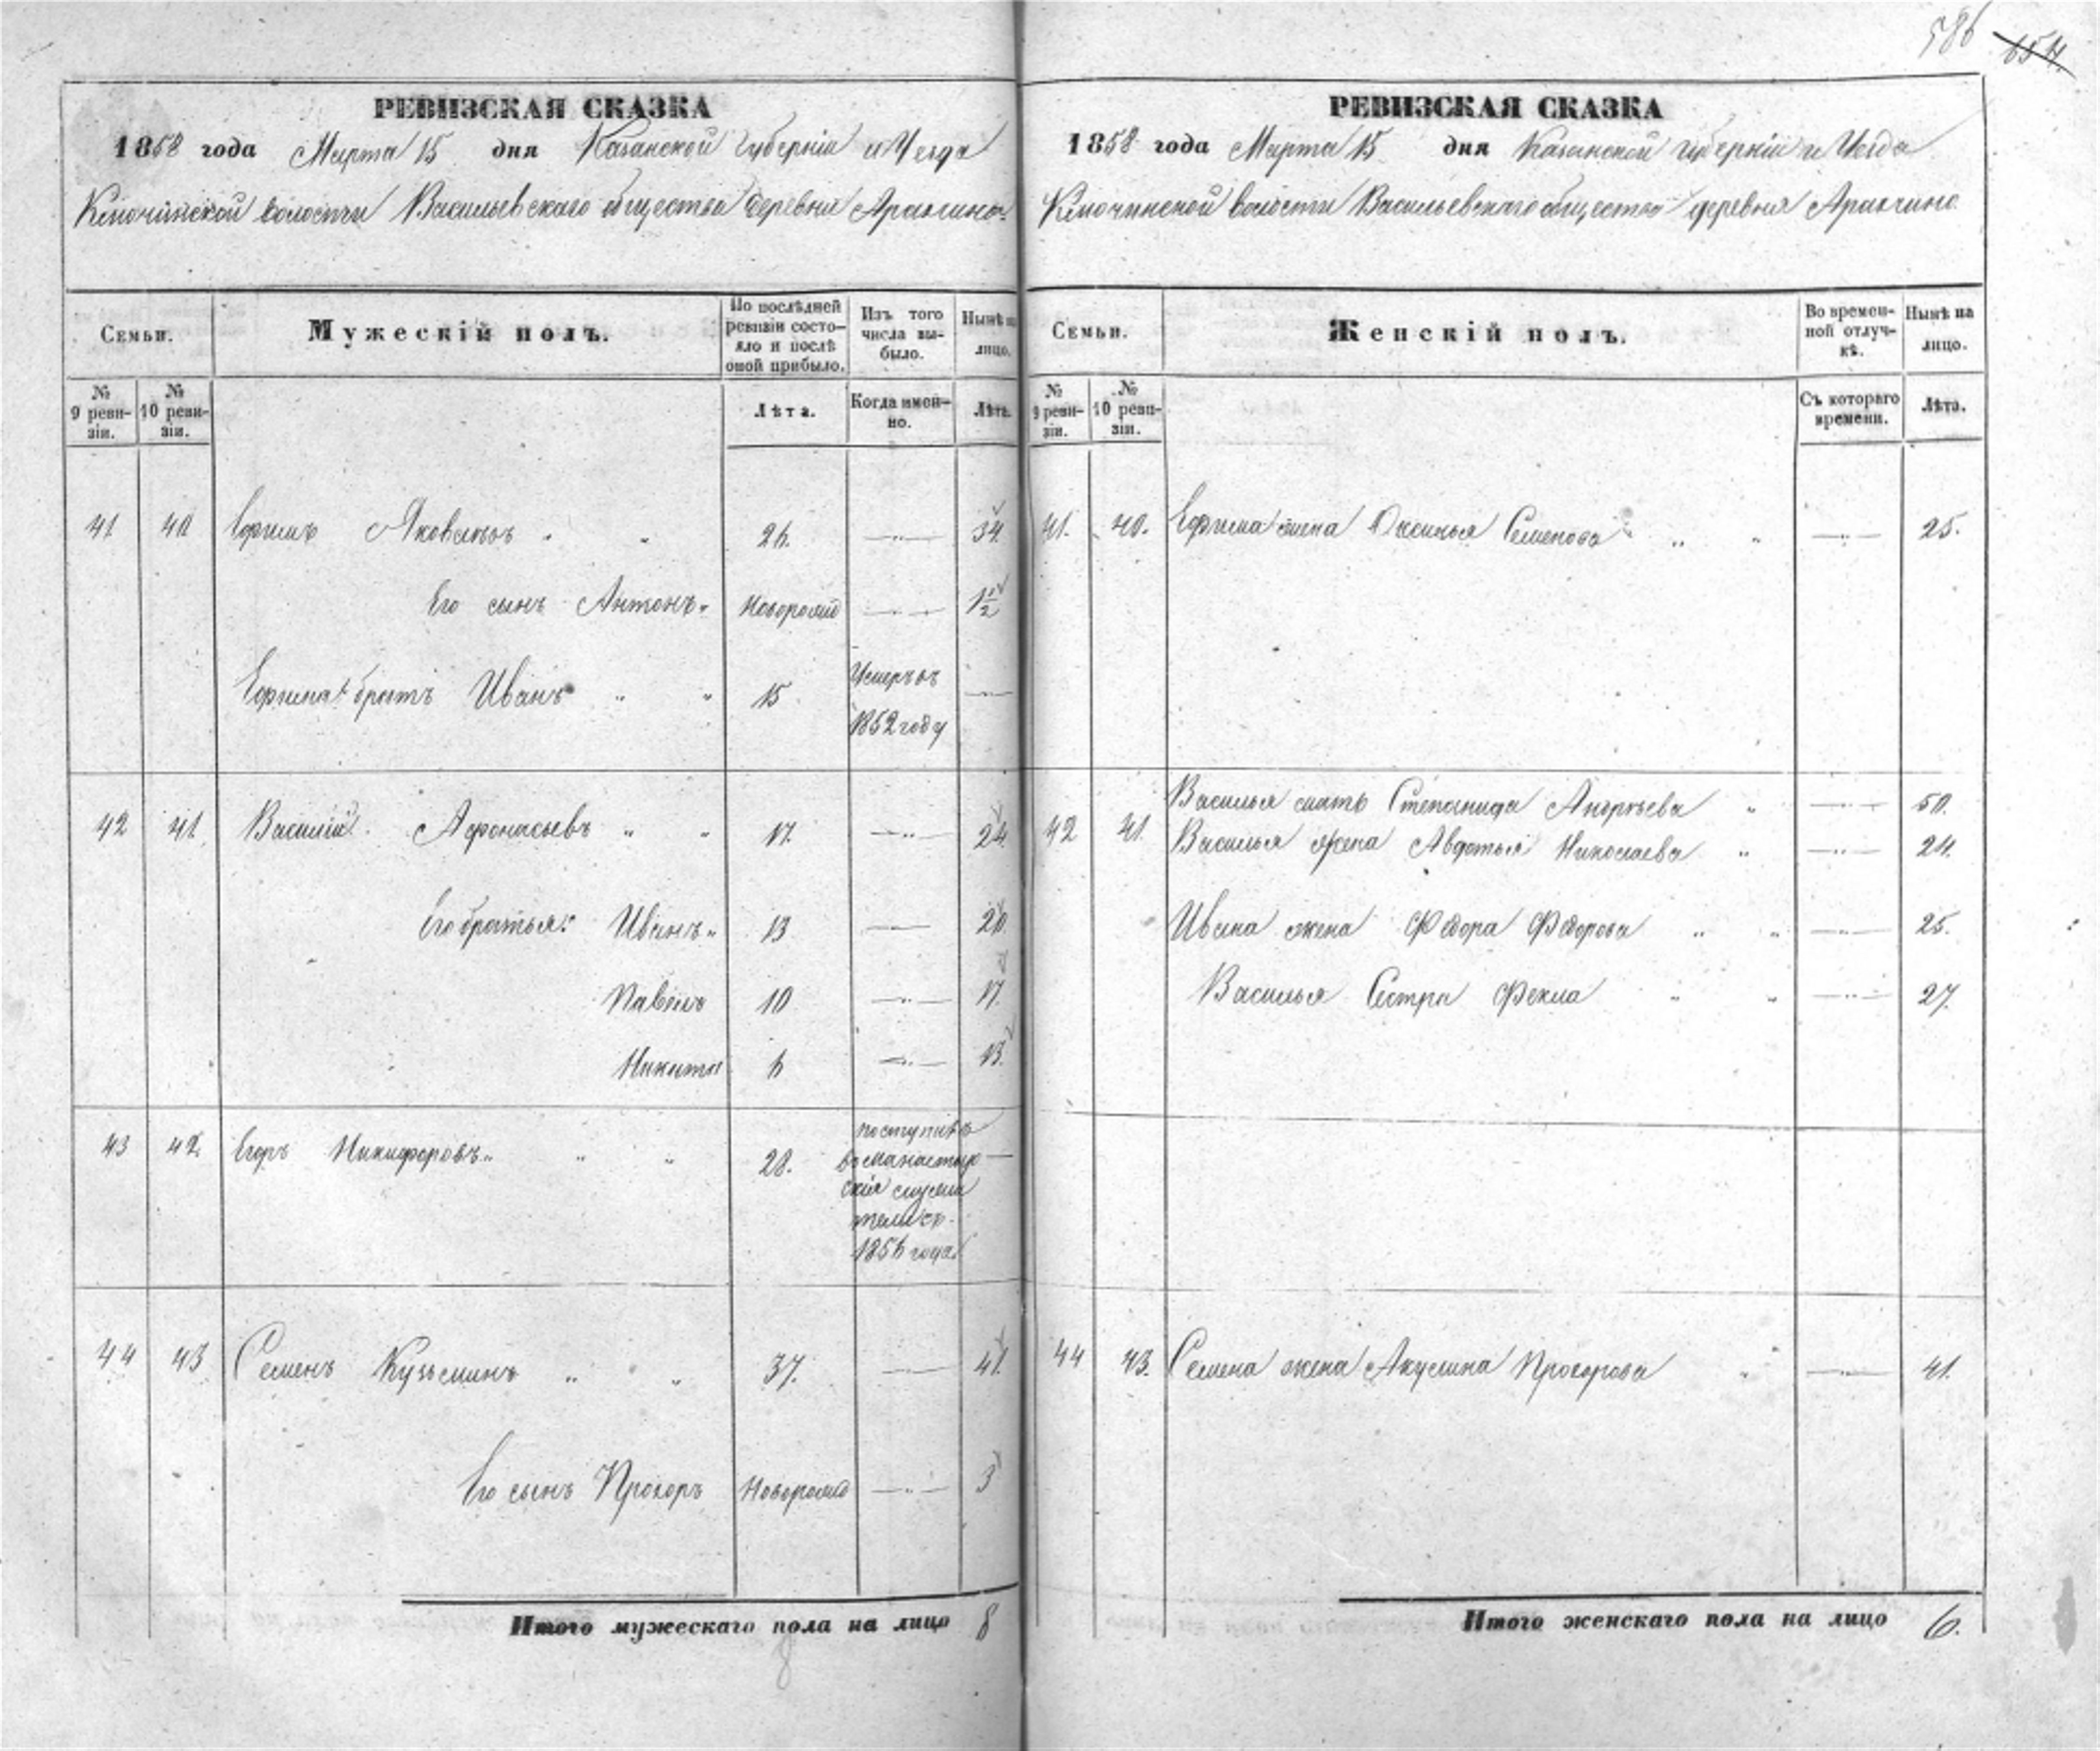 586 654.
РЕВИЗСКАЯ СКАЗКА
1858 года Марта 15 дня Казанской Губерніи и Уезда
Ключинской волости Васильевскаго общества деревни Аракчино
Семьи.
Мужескій полъ.
По послѣдней ревизіи состояло и послѣ оной прибыло.
Изъ того числа выбыло.
Нынѣ на лицо.
№ 9 ревизіи.
№ 10 ревизіи.
Лѣта.
Когда именно.
Лѣта.
41 40 Ефимъ Яковлевъ 26. 34.
Его сынъ Антонъ Новорожд 1 1/2
Ефима братъ Иванъ 15 Умеръ въ 1852 году
42 41 Василій Афонасьевъ 17. 24.
Его братья: Иванъ 13 20.
Павелъ 10 17.
Никита 6 13.
43 42 Егоръ Никифоровъ 28. поступилъ в манастырскія служители съ 1856 года
44 43 Семенъ Кузьминъ 37. 41.
Его сынъ Прохоръ Новорожд 3
Итого мужескаго пола на лицо 8
8
РЕВИЗСКАЯ СКАЗКА
1858 года Марта 15 дня Казанской губерніи и Уезда
Ключинской волости Васильевскаго общества деревня Аракчино
Семьи.
Женскій полъ.
Во временной отлучкѣ.
Нынѣ на лицо.
№ 9 ревизіи.
№ 10 ревизіи.
Съ котораго времени.
Лѣта.
41. 40. Ефима жена Оксинья Семенова 25.
Василья мать Степанида Андрѣева 50.
42 41 Василья жена Авдотья Николаева 24.
Ивана жена Федора Федорова 25.
Василья Сестра Фекла 27.
44 43. Семена жена Акулина Прохорова 41.
Итого женскаго пола на лицо 6.